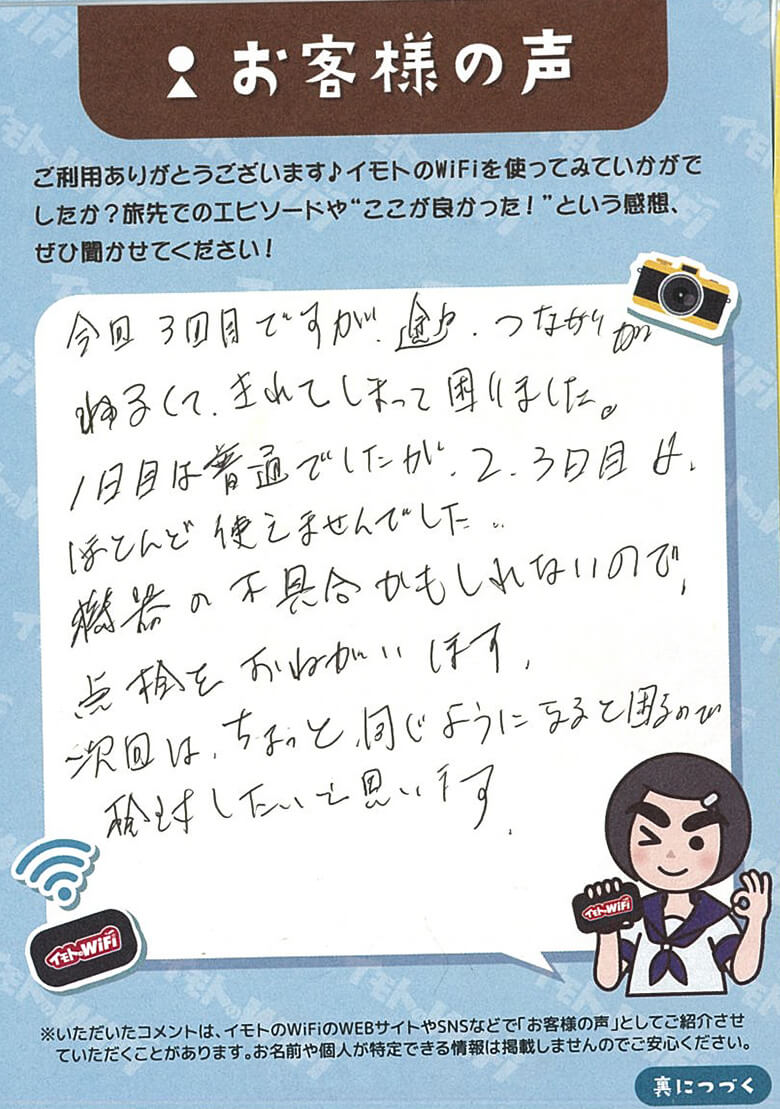 お客様の声
ご利用ありがとうございます♪イモトのWiFiを使ってみていかがで
したか？旅先でのエピソードや“ここが良かった！”という感想、
ぜひ聞かせてください！
今回3回目ですが、途中、つながりが
わるくて、きれてしまって困りました。
1日目は普通でしたが、2、3日目は、
ほとんど使えませんでした。
機器の不具合かもしれないので、
点検をおねがいします。
次回は、ちょっと、同じようになると困るので
検討したいと思います。
イモトのWiFi
イモトのWiFi
※いただいたコメントは、イモトのWiFiのWEBサイトやSNSなどで「お客様の声」としてご紹介させ
ていただくことがあります。お名前や個人が特定できる情報は掲載しませんのでご安心ください。
裏につづく